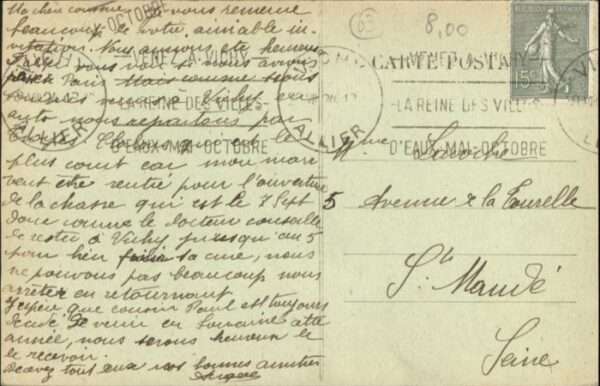 Ma chère cousine je vous remercie
beaucoup de votre aimable in-
vitation. Nous aurions été heureux
d'aller vous voir si nous avions
passé Paris Mais comme nous
sommes venus à Vichy en
auto nous repartons par
plus court car mon mari
veut être rentré pour l'ouverture
de la chasse qui est le 7 Sept
donc comme le docteur conseille
de rester à Vichy jusqu'au 5
pour bien finir sa cure, nous
ne pouvons pas beaucoup nous
arrêter en retournant
J'espère que cousin Paul est toujours
décidé de venir en Lorraine cette
année, nous serons heureux de
le recevoir.
Recevez tous deux nos bonnes amitiés
8,00
CARTE POSTALE
15c
VICHY
ALLIER
LA REINE DES VILLES
D'EAUX-MAI-OCTOBRE
ALLIER
LA REINE DES VILLES
D'EAUX-MAI-OCTOBRE
Mme
5 Avenue de la Tourelle
St Mandé
Seine